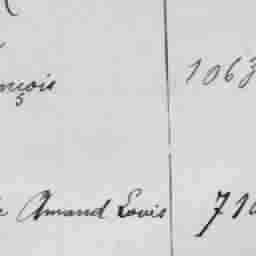 nçois 1063
5
Amand Louis 710